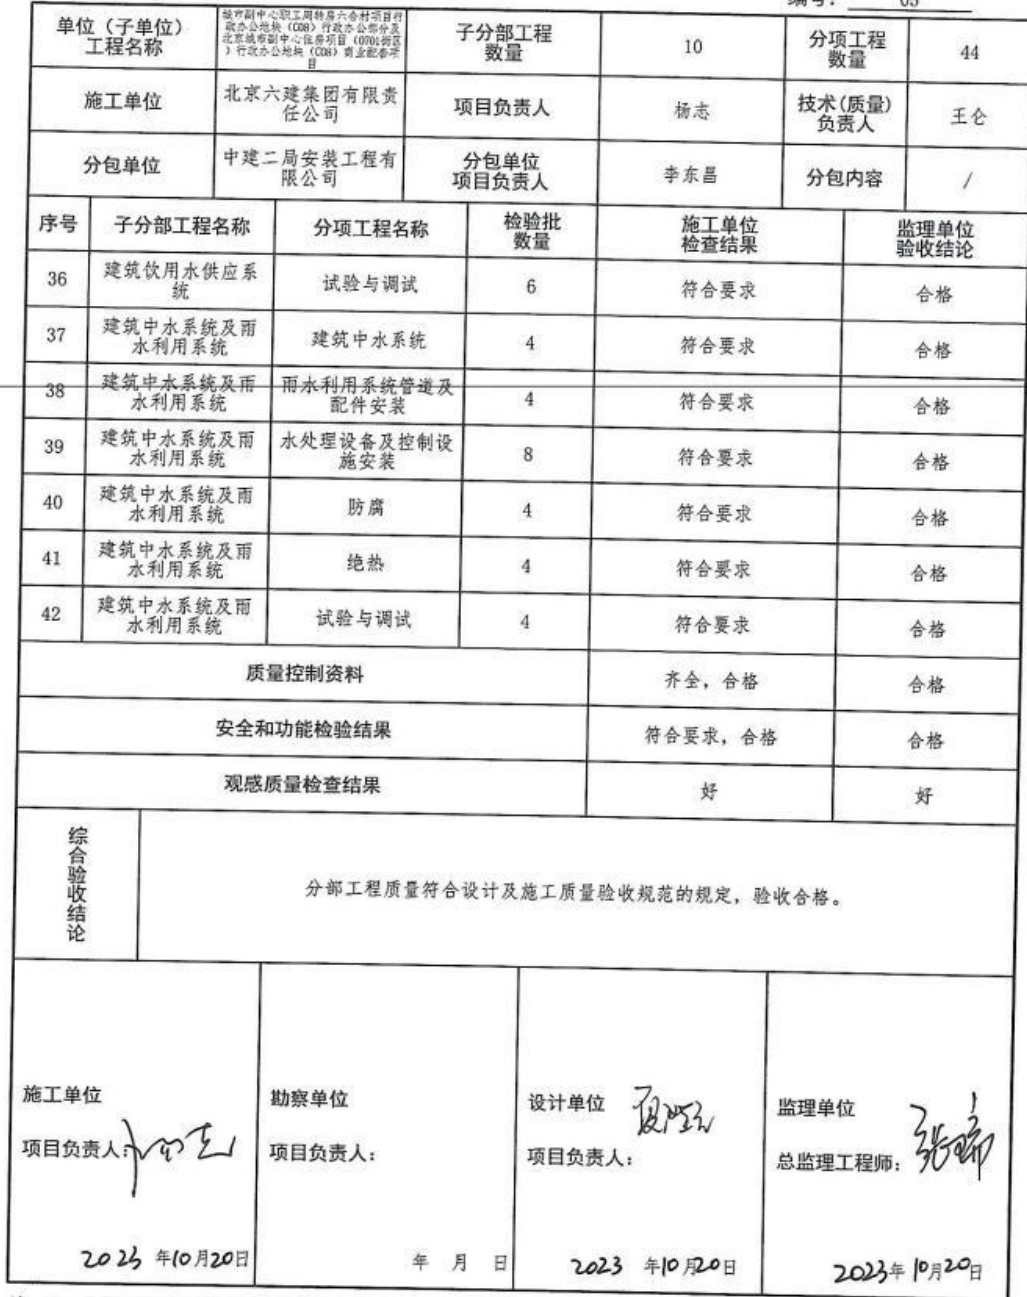 编号： 05
单位（子单位）
工程名称
城市副中心职工周转房六合村项目行
政办公地块（C08）行政办公部分及
北京城市副中心住房项目（0701街区
）行政办公地块（C08）商业配套项
目
子分部工程
数量
10
分项工程
数量
44
施工单位
北京六建集团有限责
任公司
项目负责人
杨志
技术(质量)
负责人
王仑
分包单位
中建二局安装工程有
限公司
分包单位
项目负责人
李东昌
分包内容
/
序号
子分部工程名称
分项工程名称
检验批
数量
施工单位
检查结果
监理单位
验收结论
36
建筑饮用水供应系
统
试验与调试
6
符合要求
合格
37
建筑中水系统及雨
水利用系统
建筑中水系统
4
符合要求
合格
38
建筑中水系统及雨
水利用系统
雨水利用系统管道及
配件安装
4
符合要求
合格
39
建筑中水系统及雨
水利用系统
水处理设备及控制设
施安装
8
符合要求
合格
40
建筑中水系统及雨
水利用系统
防腐
4
符合要求
合格
41
建筑中水系统及雨
水利用系统
绝热
4
符合要求
合格
42
建筑中水系统及雨
水利用系统
试验与调试
4
符合要求
合格
质量控制资料
齐全，合格
合格
安全和功能检验结果
符合要求，合格
合格
观感质量检查结果
好
好
综合验收结论
分部工程质量符合设计及施工质量验收规范的规定，验收合格。
施工单位
项目负责人：
2023 年10月20日
勘察单位
项目负责人：
年 月 日
设计单位
项目负责人：
2023 年10月20日
监理单位
总监理工程师：
2023年10月20日